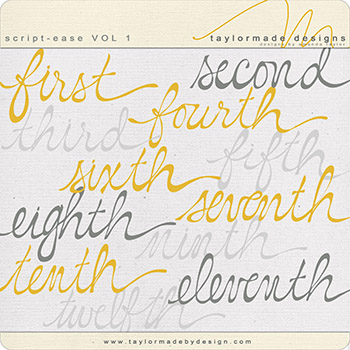 script-ease VOL 1
taylormade designs
designs by amanda taylor
first
second
fourth
third
fifth
sixth
seventh
eighth
ninth
tenth
eleventh
twelfth
www.taylormadebydesign.com